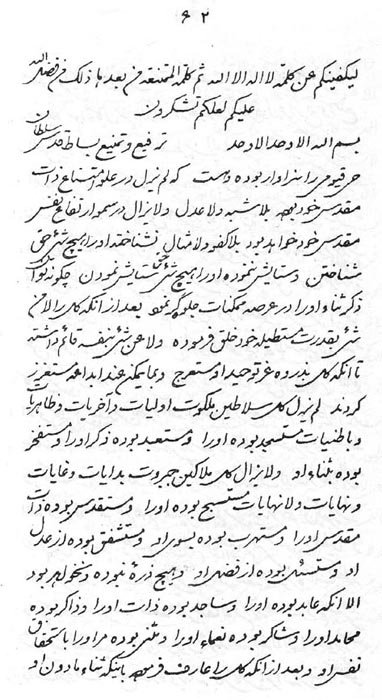 ۶۲
لیکفینکم عن کلمة لا اله الا الله ثم کلمة الممتنعة فن بعدها ذلک من فضل الله
علیکم لعلکم تشکرون
بسم الله الاوحد الاوحد ترفیع و تمنیع بساط قدس سلطان
حی قیومی را سزاوار بوده و هست که لم یزل در علو امتناع ذات
مقدس خود بوده بلا شبه ولا عدل ولا یزال در سمو ارتفاع نفس
مقدس خود خواهد بود بلا کفو ولا مثال نشناخته او را هیچ شئ حق
شناختن و ستایش ننموده او را هیچ شئ حق ستایش نمودن چگونه تواند
ذکر ثناء او را در عرصه ممکنات جلوه گر نمود بعد از آنکه کل را لا من
شئ بقدرت مستطیله خود خلق فرموده ولا عن شئ بنفسه قائم داشته
تا آنکه کل بذروه عز توحید او متعرج و بما یمکن عند ابداعه متعزز
گردند لم یزل کل سلاطین ملکوت اولیات و آخریات و ظاهریات
و باطنیات مستمجد بوده او را و مستعبد بوده ذکر او را و مستفخر
بوده بثناء او ولا یزال کل ملاکین جبروت بدایات و غایات
و نهایات ولا نهایات مستسبح بوده او را و مستقدس بوده ذات
مقدس او را و مستهرب بوده بسوی او و مستشفق بوده از عدل
او و مستسئل بوده از فضل او و هیچ ذره نبوده و نخواهد بود
الا آنکه عابد بوده او را و ساجد بوده ذات او را و ذاکر بوده
محامد او را و شاکر بوده نعماء او را و مثنی بوده مر او را باستحقاق
نفس او و بعد از آنکه کل را عارف فرموده باینکه ثناء مادون او